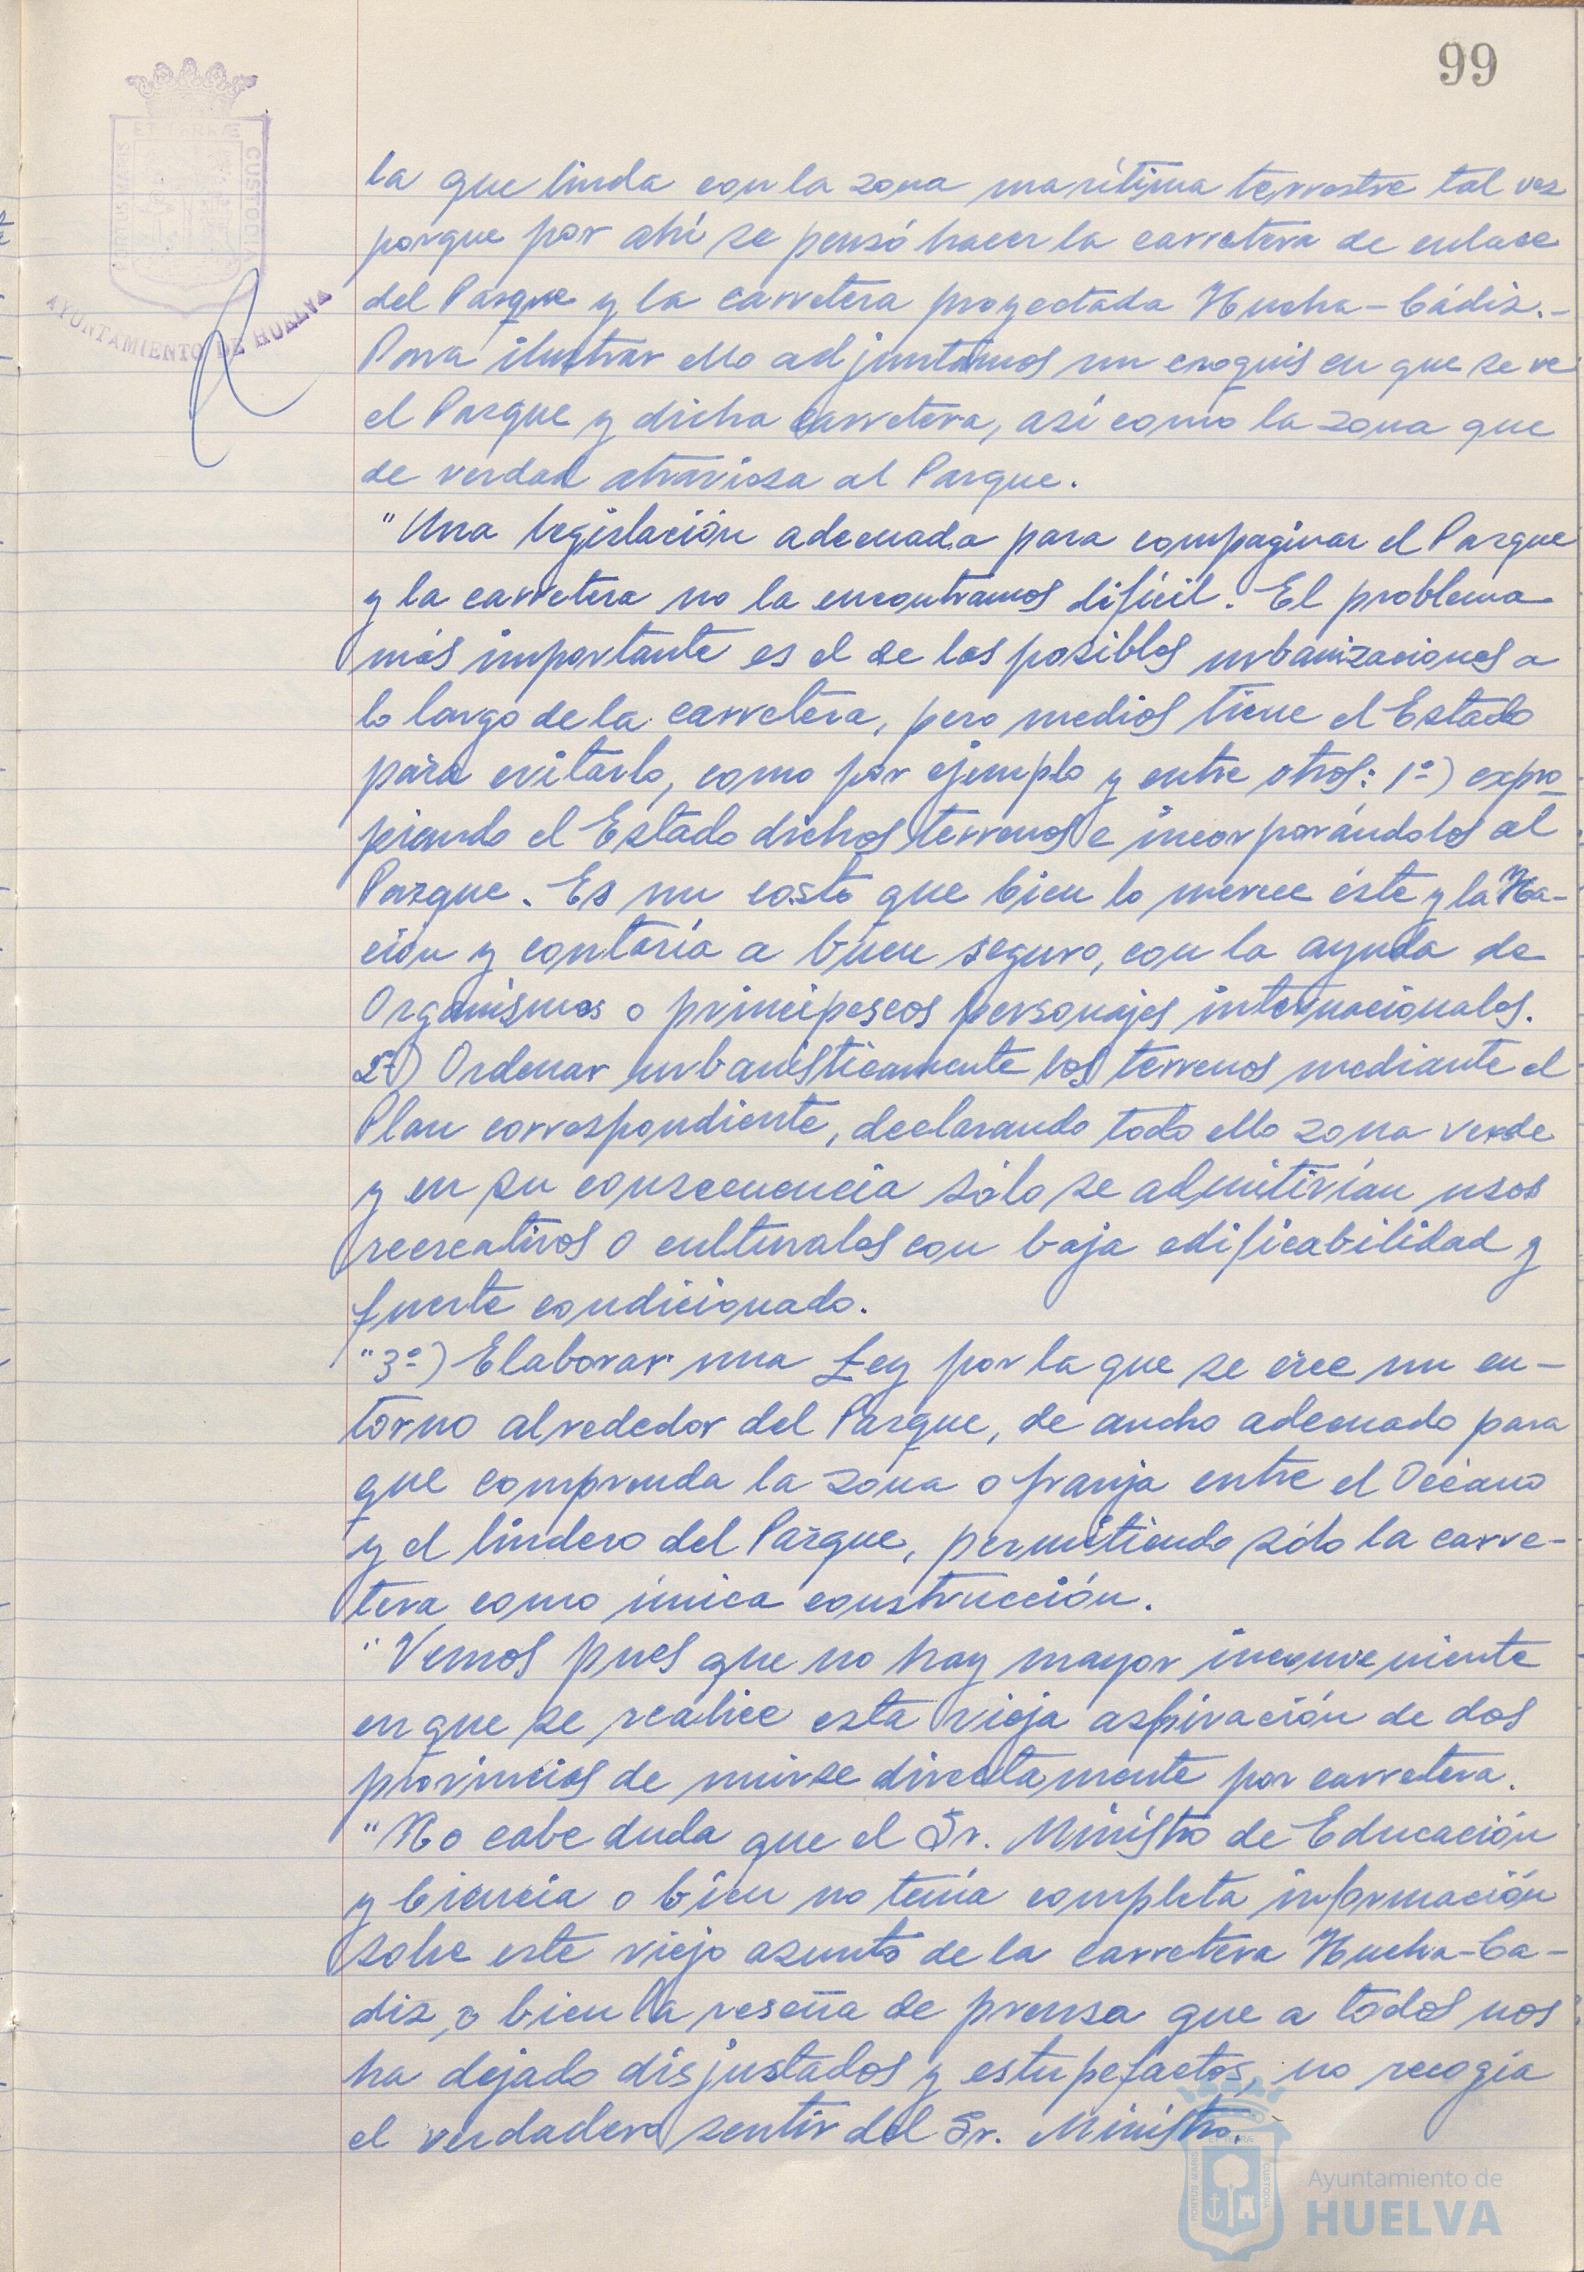 99
ET TERRÆ
PORTUS MARIS
CUSTODIA
AYUNTAMIENTO DE HUELVA
la que linda con la zona marítima terrestre tal vez
porque por ahí se pensó hacer la carretera de enlace
del Parque y la carretera proyectada Huelva-Cádiz.-
Para ilustrar ello adjuntamos un croquis en que se ve
el Parque y dicha carretera, así como la zona que
de verdad atraviesa al Parque.
"Una legislación adecuada para compaginar el Parque
y la carretera no la encontramos difícil. El problema
más importante es el de las posibles urbanizaciones a
lo largo de la carretera, pero medios tiene el Estado
para evitarlo, como por ejemplo y entre otros: 1º) expro
piando el Estado dichos terrenos e incorporándolos al
Parque. Es un costo que bien lo merece éste y la Na-
ción y contaría a buen seguro, con la ayuda de
Organismos o principescos personajes internacionales.
2º) Ordenar urbanísticamente los terrenos mediante el
Plan correspondiente, declarando todo ello zona verde
y en su consecuencia sólo se admitirían usos
recreativos o culturales con baja edificabilidad y
fuerte condicionado.
"3º) Elaborar una Ley por la que se cree un en-
torno alrededor del Parque, de ancho adecuado para
que comprenda la zona o franja entre el Océano
y el lindero del Parque, permitiendo sólo la carre-
tera como única construcción.
"Vemos pues que no hay mayor inconveniente
en que se realice esta vieja aspiración de dos
provincias de unirse directamente por carretera.
"No cabe duda que el Sr. Ministro de Educación
y Ciencia o bien no tenía completa información
sobre este viejo asunto de la carretera Huelva-Cá-
diz, o bien la reseña de prensa que a todos nos
ha dejado disjustados y estupefactos, no recogía
el verdadero sentir del Sr. Ministro.
PORTUS MARIS
CUSTODIA
Ayuntamiento de
HUELVA